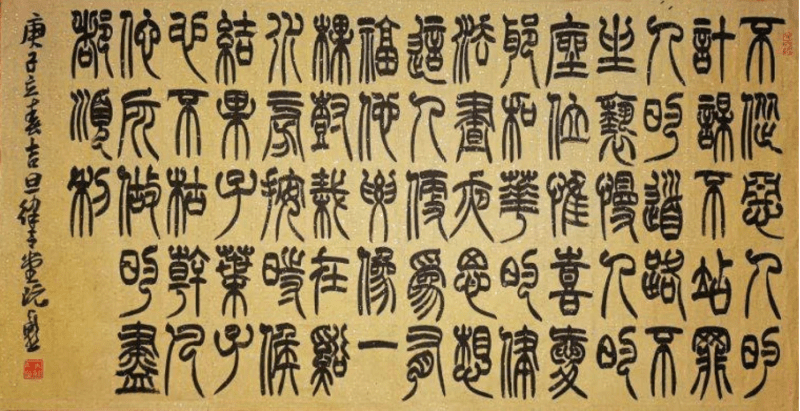 不從惡人的
計謀不站罪
人的道路不
坐褻慢人的
座位惟喜愛
耶和華的律
法晝夜思想
這人便爲有
福他要像一
棵樹栽在溪
水旁按時候
結果子葉子
也不枯幹凡
他所做的盡
都順利
庚子立春吉旦